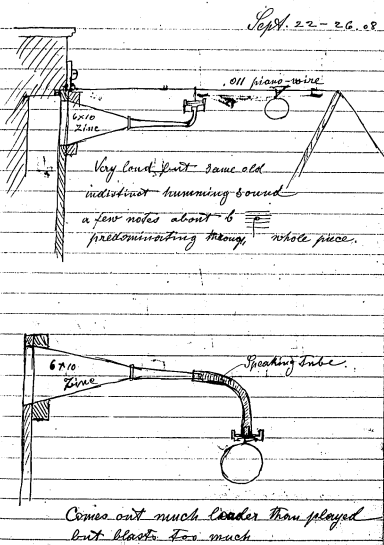 Sept. 22-26.08
.011 piano-wire
6x10
Zinc
Very loud, but same old
indistinct humming sound
a few notes about b
predominating through whole piece.
6x10
Zinc
Speaking tube.
Comes out much louder than played
but blasts too much